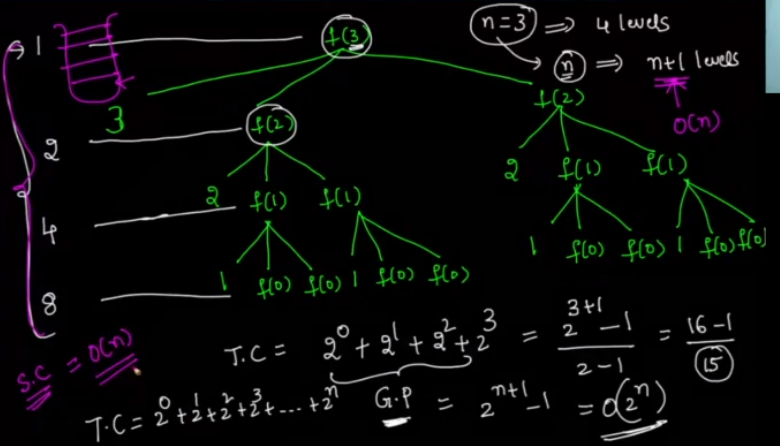 1 f(3) n=3 ⇒ 4 levels
n ⇒ n+1 levels
3 f(2) O(n)
2 f(2)
2 f(1) f(1) 2 f(1) f(1)
4
1 f(0) f(0) 1 f(0) f(0) 1 f(0) f(0) 1 f(0) f(0)
8
S.C = O(n)
T.C = 2^0 + 2^1 + 2^2 + 2^3 = (2^(3+1) - 1)/(2-1) = (16-1)/15
T.C = 2^0 + 2^1 + 2^2 + 2^3 + .... + 2^n G.P = 2^(n+1) - 1 = O(2^n)